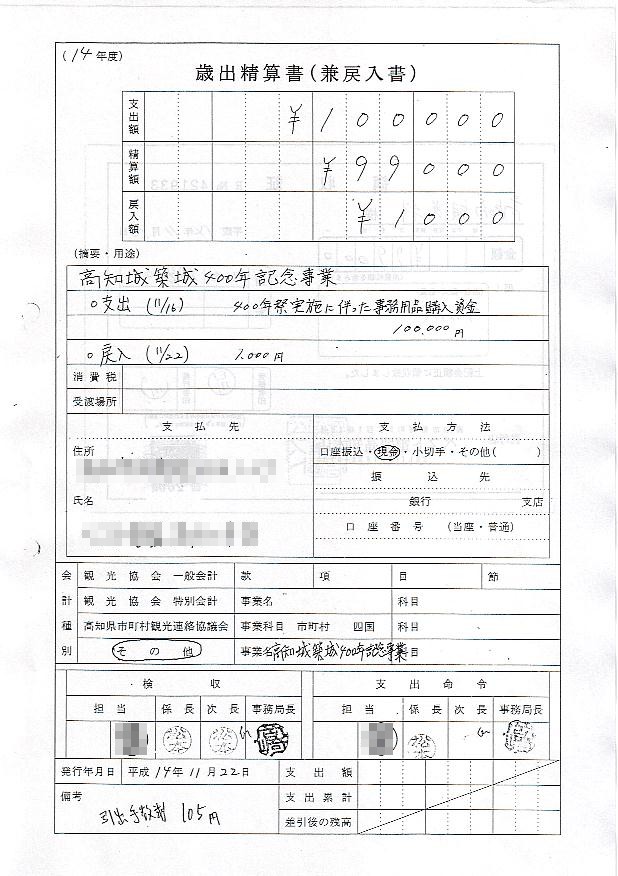 (14年度)
歳出精算書(兼戻入書)
支出額 ¥100000
精算額 ¥99000
戻入額 ¥1000
(摘要・用途)
高知城築城400年記念事業
○支出 (11/16) 400年祭実施に伴った事務用品購入資金
100.000円
○戻入 (11/22) 1.000円
消費税
受渡場所
支払先 支払方法
住所 口座振込・現金・小切手・その他( )
振込先
氏名 銀行 支店
口座番号 (当座・普通)
会計種別
観光協会 一般会計 款 項 目 節
観光協会 特別会計 事業名 科目
高知県市町村観光連絡協議会 事業科目 市町村 四国 科目
その他 事業名高知城築城400年記念事業 目
検収 支出命令
担当 係長 次長 事務局長 担当 係長 次長 事務局長
松本 松本 松本
発行年月日 平成14年11月22日 支出額
備考 支出累計
引出手数料 105円 差引後の残高